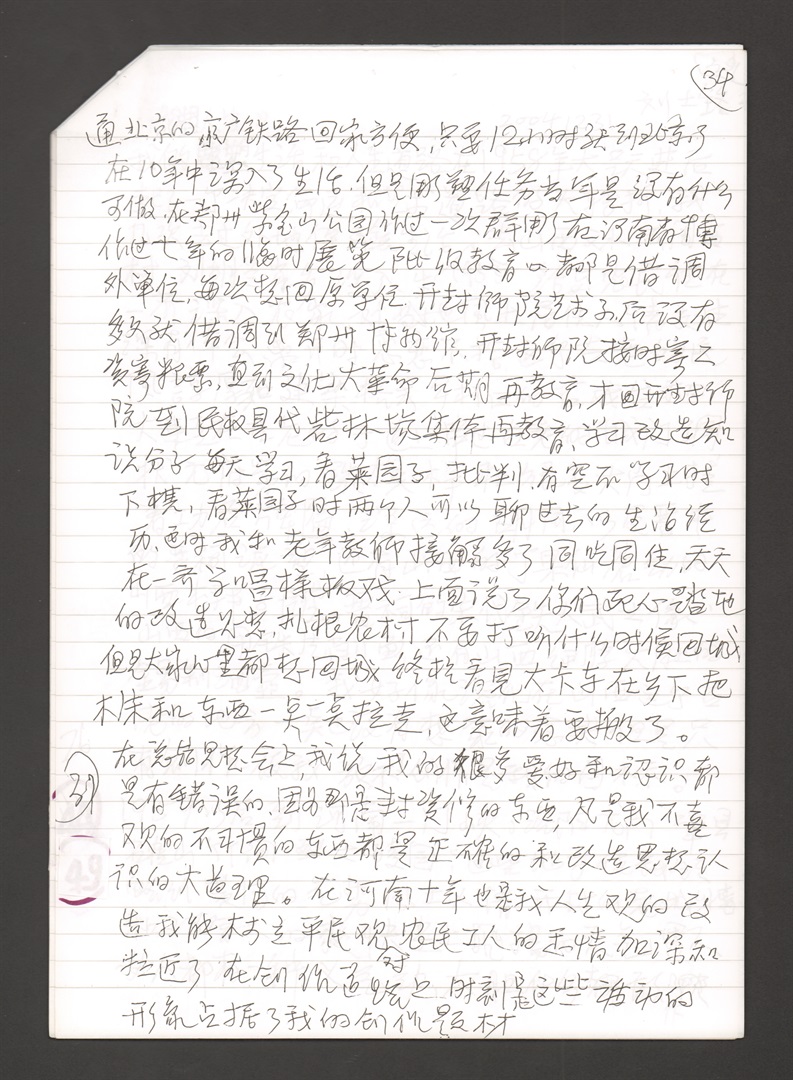 34
通北京的京广铁路回家方便,只要12小时就到北京了
在10年中深入了生活.但是雕塑任务当年是没有什么
可做.在郑州紫金山公园作过一次群雕在河南省博
作过七年的临时展览阶级教育心都是借调
外单位,每次想回原单位开封师院艺术系后没有
多久就借调到郑州博物馆,开封师院按时寄工
资寄粮票,直到文化大革命后期再教育,才回开封师
院到民权县代砦林场集体再教育,学习改造知
识分子每天学习,看菜园子,批判.有空不学习时
下棋,看菜园子时两个人可以聊过去的生活经
历.这时我和老年教师接触多了同吃同住,天天
在一齐学唱样板戏.上面说了你们死心踏地
的改造思想,扎根农村不要打听什么时候回城
但是大家心里都想回城终于看見大卡车在乡下把
木床和东西一点一点拉走,这意味着要搬了。
在总结思想会上,我说我的很多爱好和认识都
39
是有错误的.因为那是封资修的东西,凡是我不喜
欢的不习惯的东西都是正确的和改造思想认
49
识的大道理。在河南十年也是我人生观的改
造我能树立平民观对农民工人的感情加深和
拉近了在创作道路上时刻是这些被动的
形象占据了我的创作题材